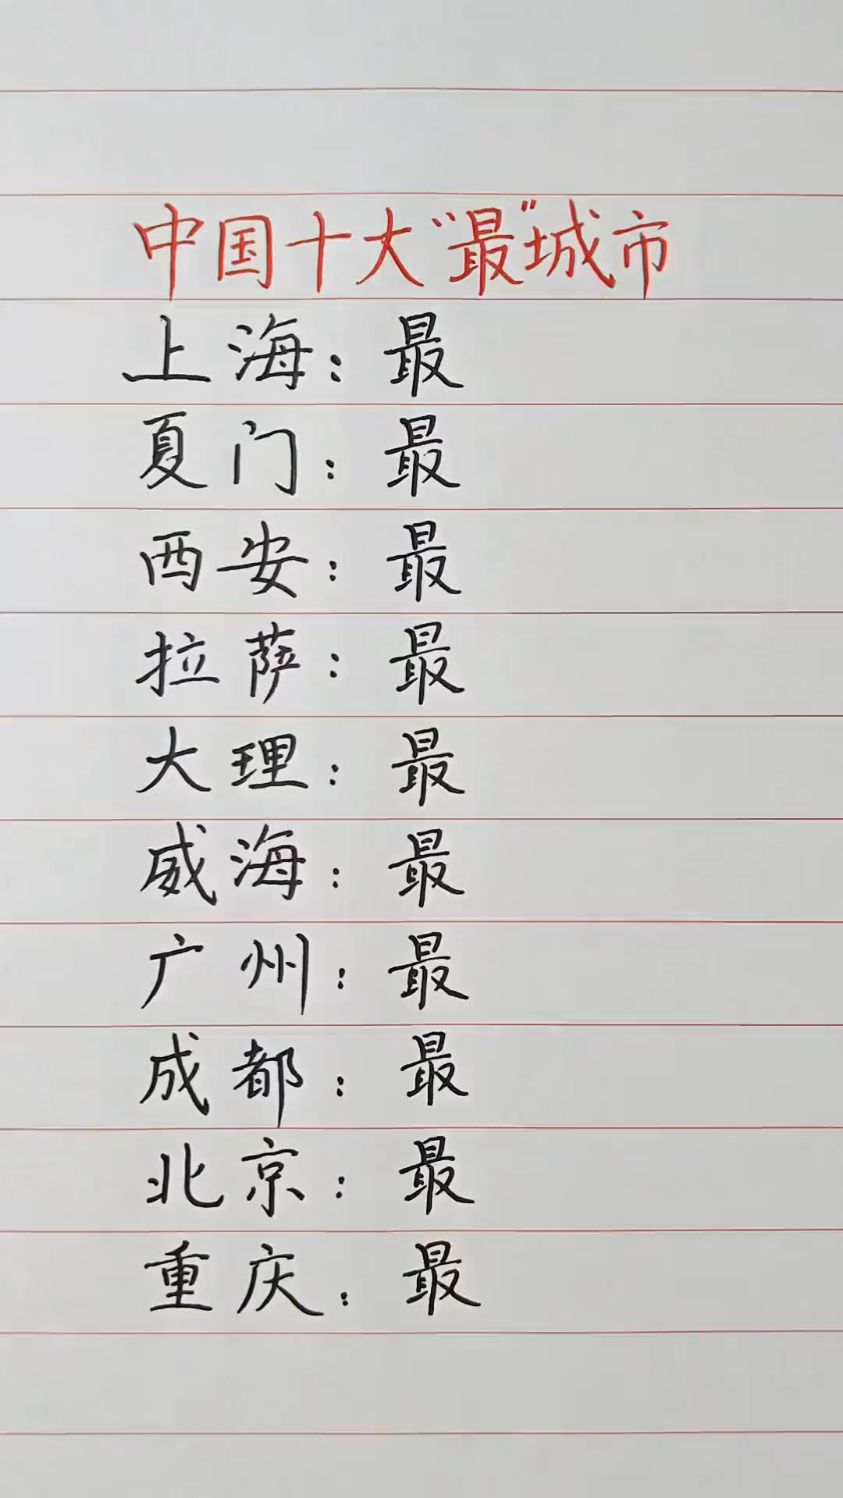 中国十大“最”城市
上海：最
夏门：最
西安：最
拉萨：最
大理：最
威海：最
广州：最
成都：最
北京：最
重庆：最